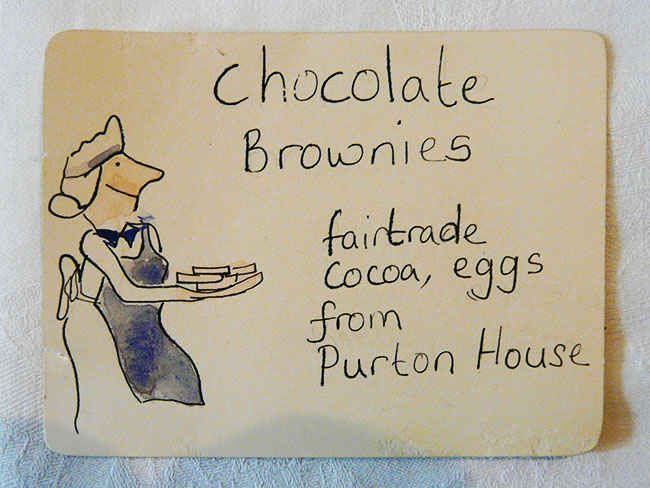 Chocolate
Brownies
fairtrade
cocoa, eggs
from
Purton House